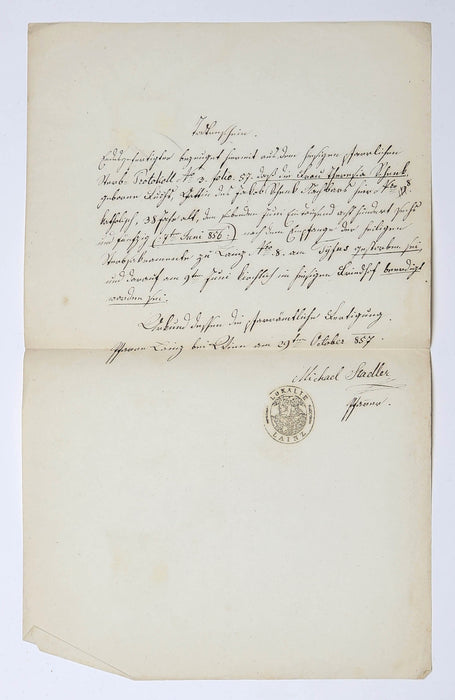 Todtenschein.
Endesgefertigter bezeuget hiermit aus dem hiesigen pfarrlichen
Sterb-Protokoll No 2. folio. 57. daß die Frau Theresia Schenk,
geborene Fuchs, Gattin des Jakob Schenk hier, No 8
katholisch, 38 Jahr alt, den siebenten Juni Eintausend acht hundert sechs
und fünfzig (: 7ten Juni 856 :) nach dem Empfange der heiligen
Sterbsakramente zu Lainz, No 8. am Tyfus gestorben sei,
und darauf am 9ten Juni kirchlich im hiesigen Friedhof beerdigt
worden sei.
Urkund dessen die pfarrämtliche Fertigung.
Pfarre Lainz bei Wien am 29ten October 857.
Michael Stadler
Pfarrer.
LOKALIE
LAINZ